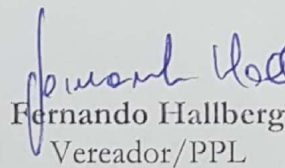 Fernando Hallberg
Vereador/PPL